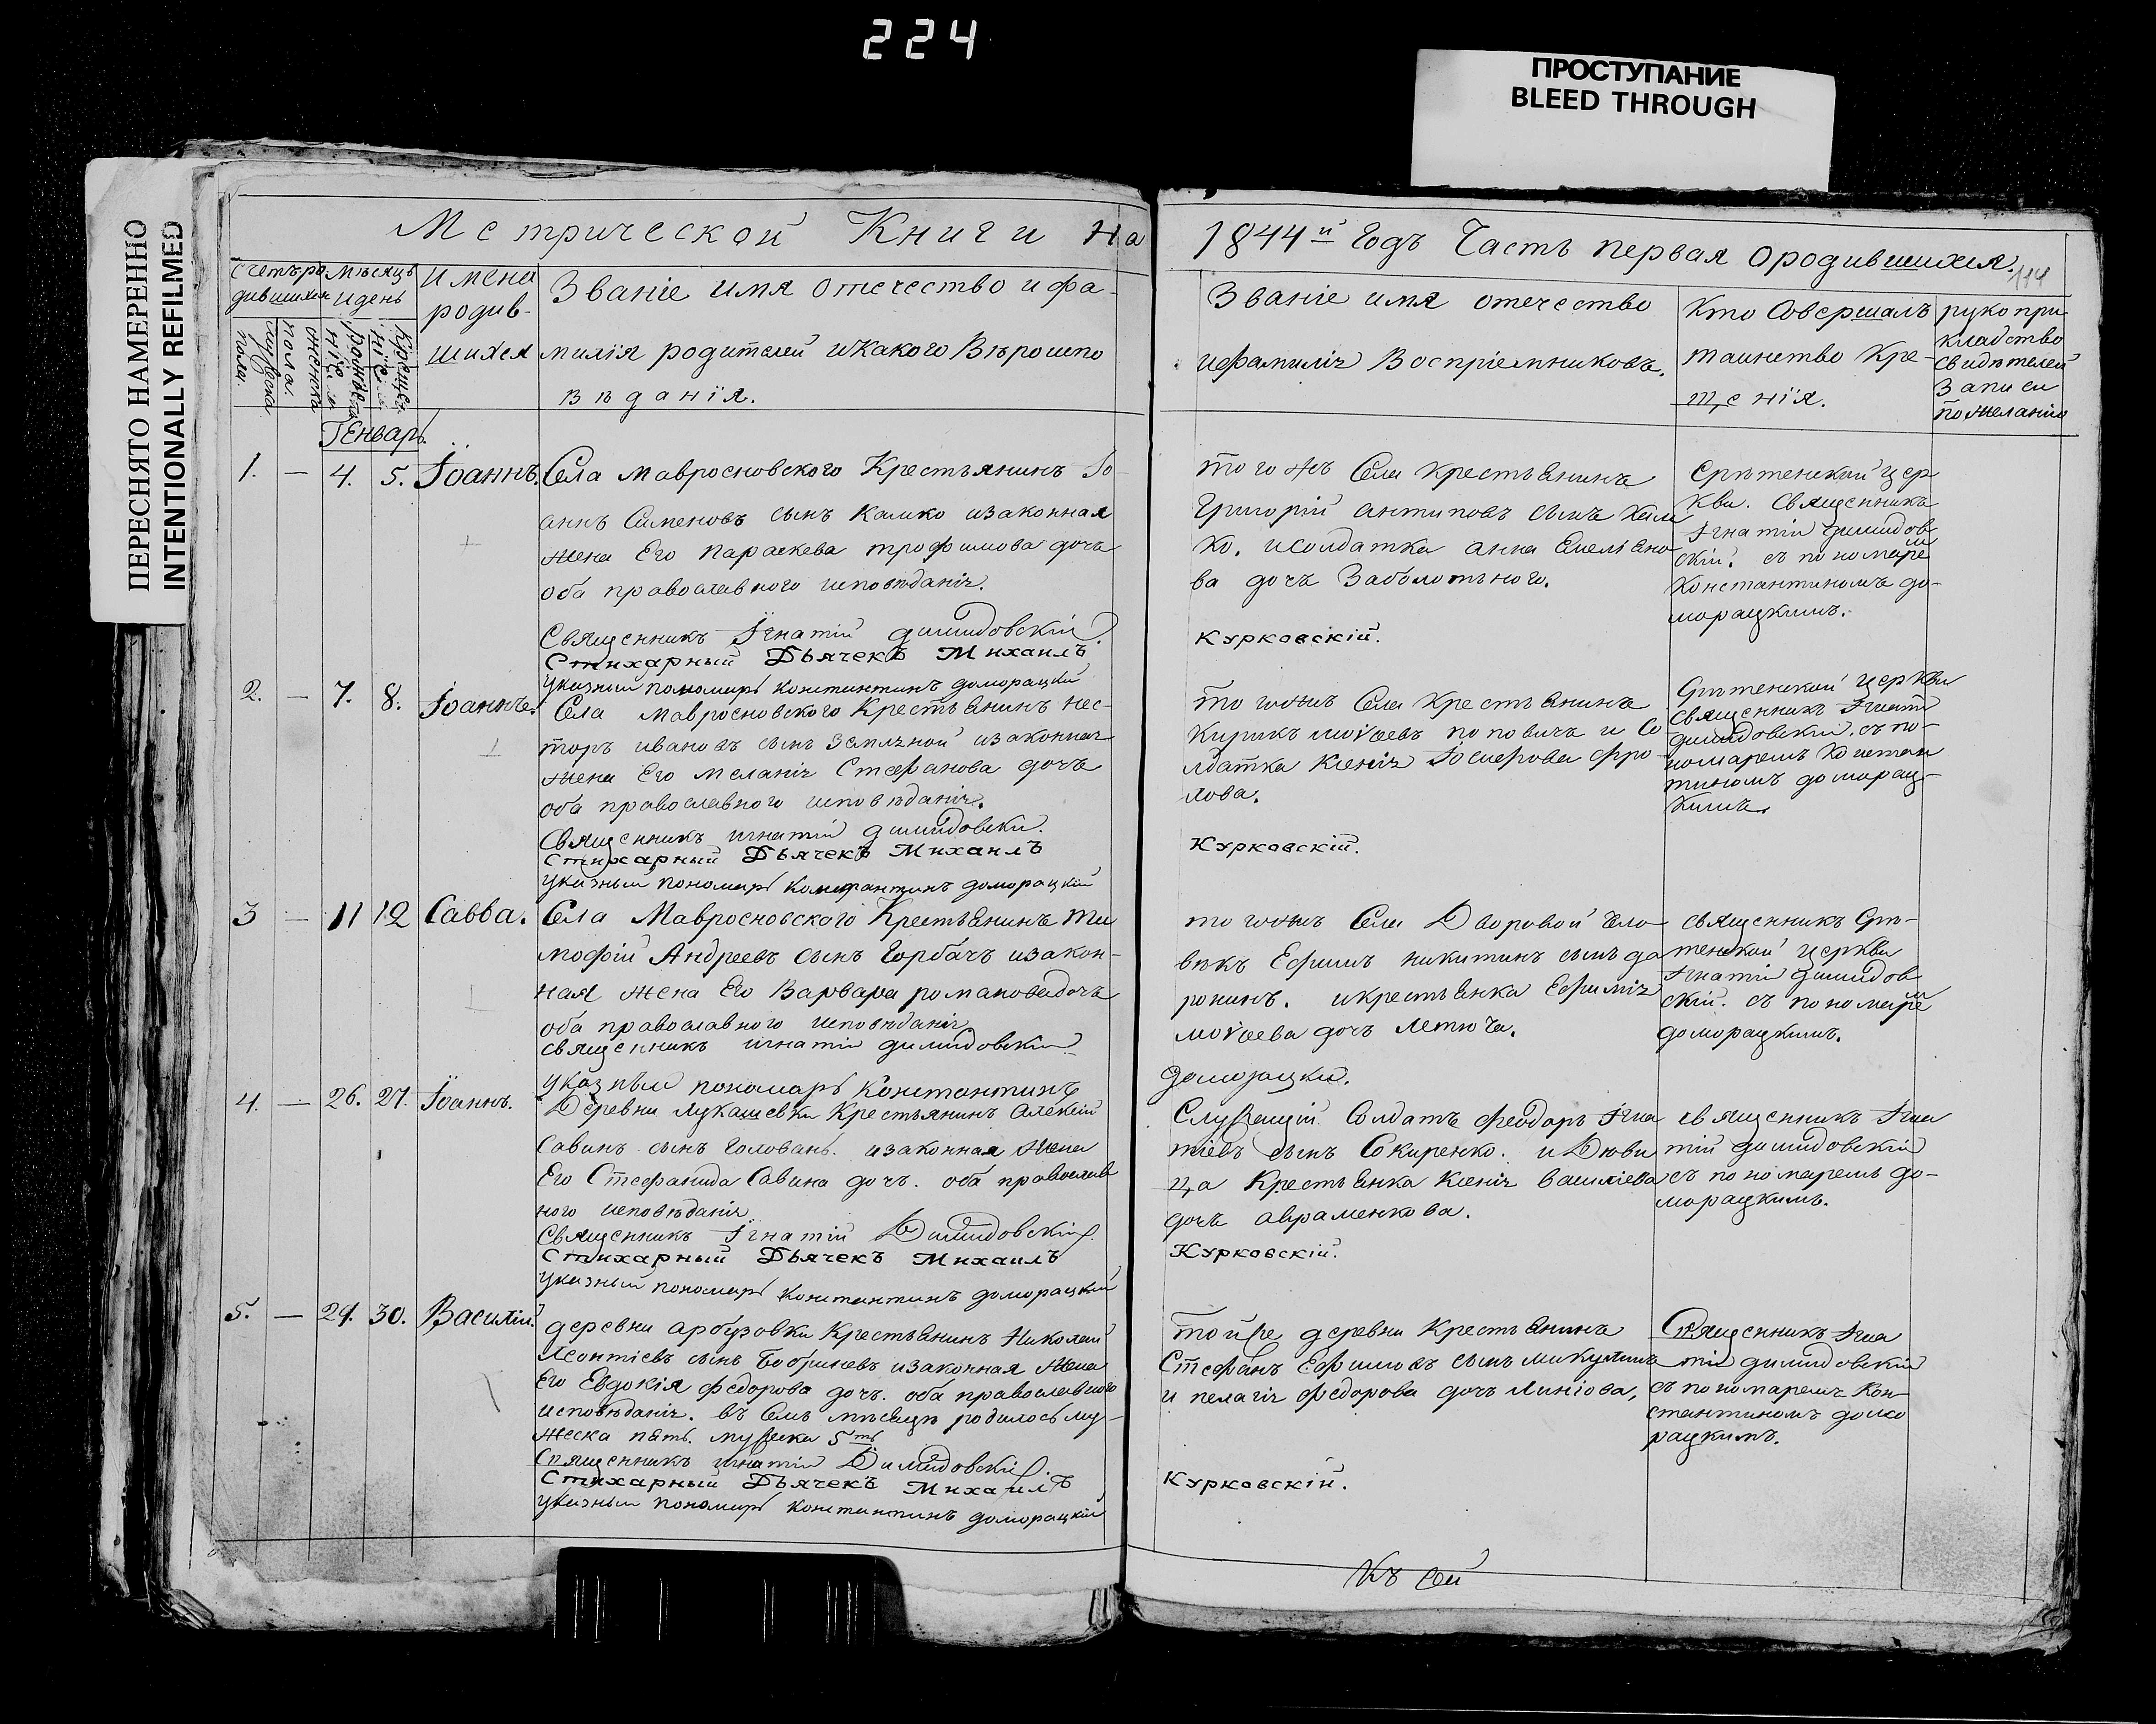 224
ПРОСТУПАНИЕ
BLEED THROUGH
ПЕРЕСНЯТО НАМЕРЕННО
INTENTIONALLY REFILMED
Метрической Книги на
1844й годъ Часть первая о родившихся.
114
Счетъ ро
дившихся
мужеска
пола.
женска
пола.
Мѣсяцъ
и день
рожде
нїя
Крещен
нїя
имена
родив-
шихся
Званіе имя отечество и фа-
милїя родителей и какого вѣроиспо
вѣданїя.
Званіе имя отечество
и фамилія Воспріемниковъ.
Кто Совершалъ
таинство Кре-
щенїя.
рукопри
кладство
свидѣтелей
Записи
по желанію
Генварь
1. — 4. 5. Іоаннъ.
Села Мавросновского Крестьянинъ Іо-
аннъ Сименовъ сынъ Калико и законная
жена Его Параскева трофимова дочь
оба православного исповѣданія.
Священникъ Ігнатій димидовскій
Стихарный Дьячекъ Михаилъ
Указный пономарь константинъ доморацкій
того жъ Села крестьянинъ
Григорій антиповъ сынъ Кали
ко. и солдатка анна Емельяно
ва дочь Заболотьного.
Курковскій.
Срѣтенской цер
кви. Священникъ
Ігнатій димидов
скій. съ пономарем
Константиномъ до-
морацкимъ.
2. — 7. 8. Іоаннъ.
Села Мавросновского Крестьянинъ Нес-
торъ ивановъ сынъ Земляной и законная
жена Его меланія Стефанова дочь
оба православного исповѣданія.
Священникъ игнатій димидовскій.
Стихарный Дьячекъ Михаилъ
Указный пономарь константинъ доморацкій
того жъ Села Крестьянинъ
Кирикъ моѵсеевъ поповичъ и Со
лдатка ксенія Іосифова фро-
лова.
Курковскій.
Срѣтенской Церкви
священникъ Ігнатій
димидовскій. съ по-
номаремъ Констан
тиномъ доморац-
кимъ.
3 — 11 12 Савва.
Села Мавросновского Крестьянинъ Ти
мофій Андреевъ сынъ Горбачъ и закон-
ная жена Его Варвара романова дочь
оба православного исповѣданія
священникъ игнатій димидовскій
Указный пономарь Константинъ
того жъ Села Дворовой Чело
вѣкъ Ефимъ никитинъ сынъ до
ронинъ. и крестьянка Ефимія
моѵсеева дочь Летюча.
доморацкій.
священникъ Срѣ-
тенской Церкви
Ігнатій димидов
скій. съ пономарем
доморацкимъ.
4. — 26. 27. Іоаннъ.
Деревни Лукашевки Крестьянинъ Алексій
Савинъ сынъ Головань. и законная жена
Его Стефанида Савина дочь. оба православ
ного исповѣданія
Священникъ Ігнатій Димидовскій.
Стихарный Дьячекъ Михаилъ
Указный пономарь константинъ доморацкій
Служащій Солдатъ Феодоръ Ігна
тіевъ сынъ Сокиренко. и Дѣви
ца Крестьянка ксенія василіева
дочь авраменкова.
Курковскій.
священникъ Ігна
тій димидовскій
съ пономаремъ до-
морацкимъ.
5. — 29. 30. Василій.
деревни арбузовки Крестьянинъ Николай
Леонтіевъ сынъ Бобриневъ и законная жена
Его Евдокія федорова дочь. оба православного
исповѣданія. въ семъ мѣсяцѣ родилось му-
жеска пять. мужска 5ть
Священникъ игнатій Димидовскій.
Стихарный Дьячекъ Михаилъ
Указный пономарь константинъ доморацкій
тойже деревни Крестьянинъ
Стефанъ Ефимовъ сынъ микулинъ
и пелагія федорова дочь Линіова,
Курковскій.
Священникъ Ігна
тій димидовскій
съ пономаремъ Кон-
стантиномъ домо
рацкимъ.
Къ сей